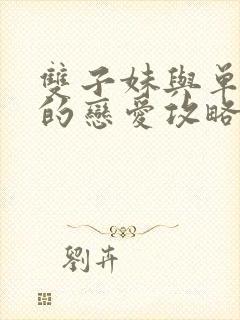 雙子妹與單
的戀愛攻略
劉卉